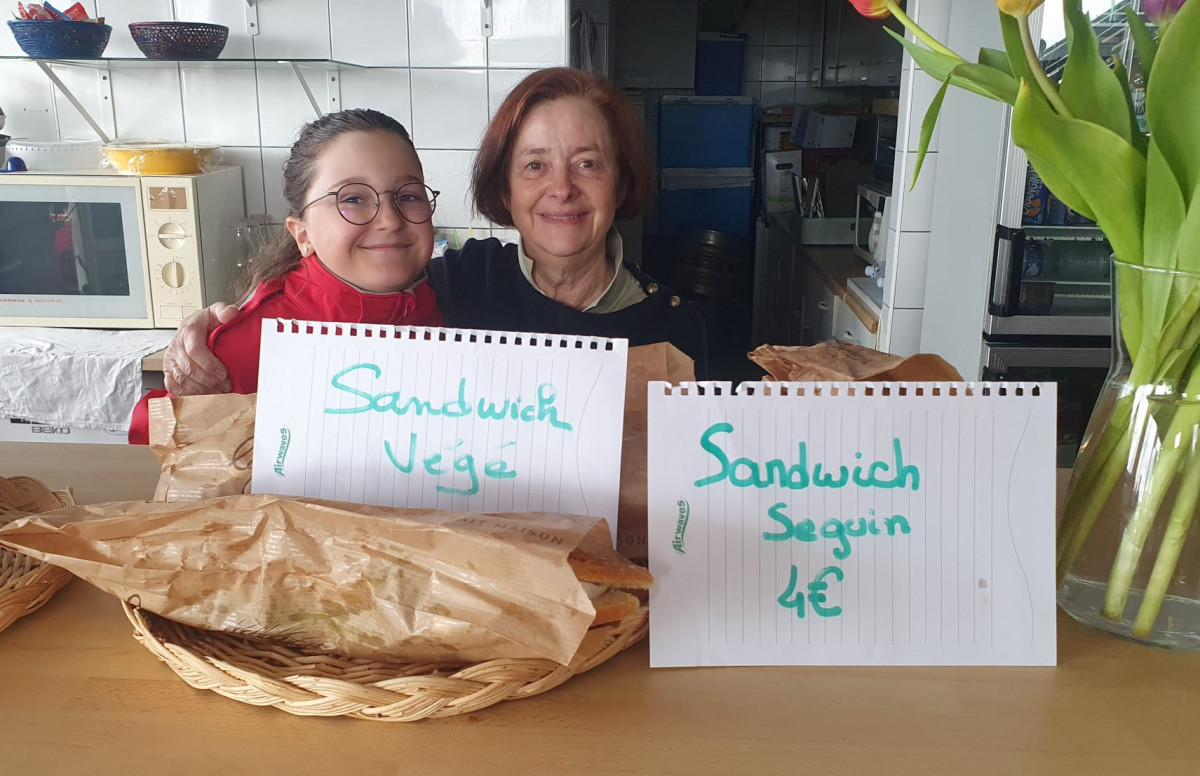 Sandwich
Végé
Airwaves
AIT MAISON
Sandwich
Seguin
4€
Airwaves